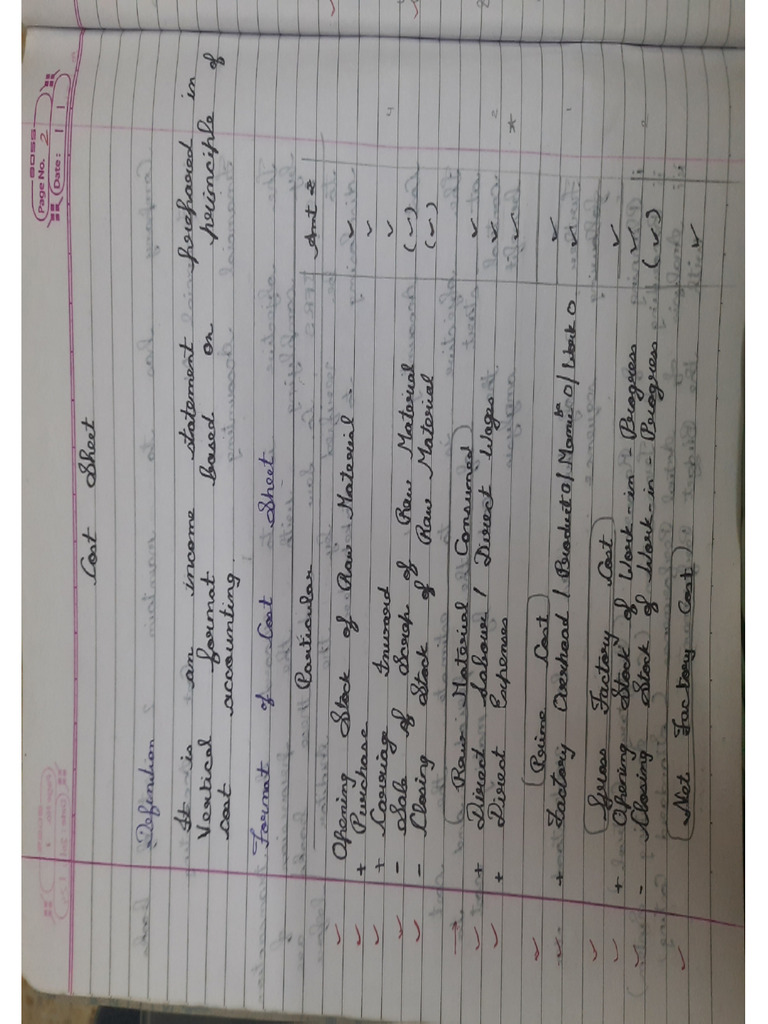 GOSS
Page No. 2
Date:
Cost Sheet
Definition
It is an income statement prepared in
Vertical format based on principle of
cost accounting.
Format of Cost Sheet
Particular Amt ₹
Opening Stock of Raw Material ✓
+ Purchase ✓
+ Carriage Inward ✓
- Sale of Scrap of Raw Material (✓)
- Closing Stock of Raw Material (✓)
Raw Material Consumed
+ Direct Labour / Direct Wages ✓
+ Direct Expenses ✓
Prime Cost ✓
+ Factory Overhead / Product O/ Manuⁿ O/ Work O ✓
Gross Factory Cost ✓
+ Opening Stock of Work-in-Progress ✓
- Closing Stock of Work-in-Progress (✓)
Net Factory Cost ✓